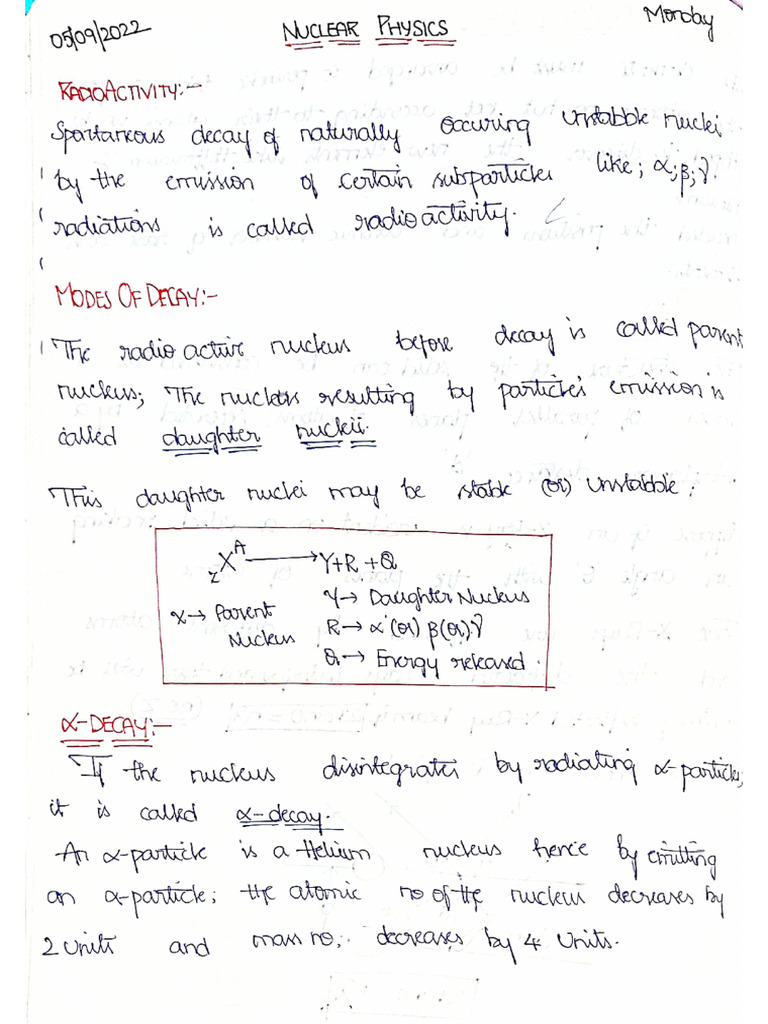 05/09/2022 NUCLEAR PHYSICS Monday
RADIOACTIVITY:-
Spontaneous decay of naturally occuring unstabble nuclei
by the emission of certain subparticles like; α;β;γ.
radiations is called radioactivity.
MODES OF DECAY:-
The radio active nucleus before decay is called parent
nucleus; The nucleus resulting by particles emission is
called daughter nuclii.
This daughter nuclei may be stable (or) unstabble.
zXᴬ → Y+R+Q
X→ Parent Nucleus
Y→ Daughter Nucleus
R→ α (or) β (or) γ
Q→ Energy released.
α-DECAY:-
If the nucleus disintegrates by radiating α-particle;
it is called α-decay.
An α-particle is a Helium nucleus hence by emitting
an α-particle; the atomic no of the nucleus decreases by
2 units and mass no; decreases by 4 units.